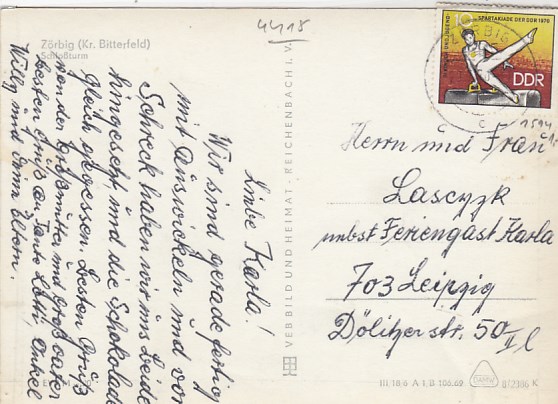 4418
Zörbig (Kr. Bitterfeld)
Schloßturm
Liebe Karla!
Wir sind gerade fertig
mit auswickeln und vor
Schreck haben wir uns beide
hingesetzt, und die Schokolade
gleich gegessen. Besten Gruß
von der Großmutter und Großvater
besten Gruß an Tante Lotti, Onkel
Willy und Deine Eltern.
VEB BILD UND HEIMAT · REICHENBACH I. V.
10
II. KINDER- UND JUGEND-
SPARTAKIADE DER DDR 1970
DDR
ZÖRBIG
c
1594
Herrn und Frau
Lasczyk
nebst Feriengast Karla
703 Leipzig
Dölitzer str. 50
II l
III/18/6 A 1 B 106/69
DEWAG
012306 K